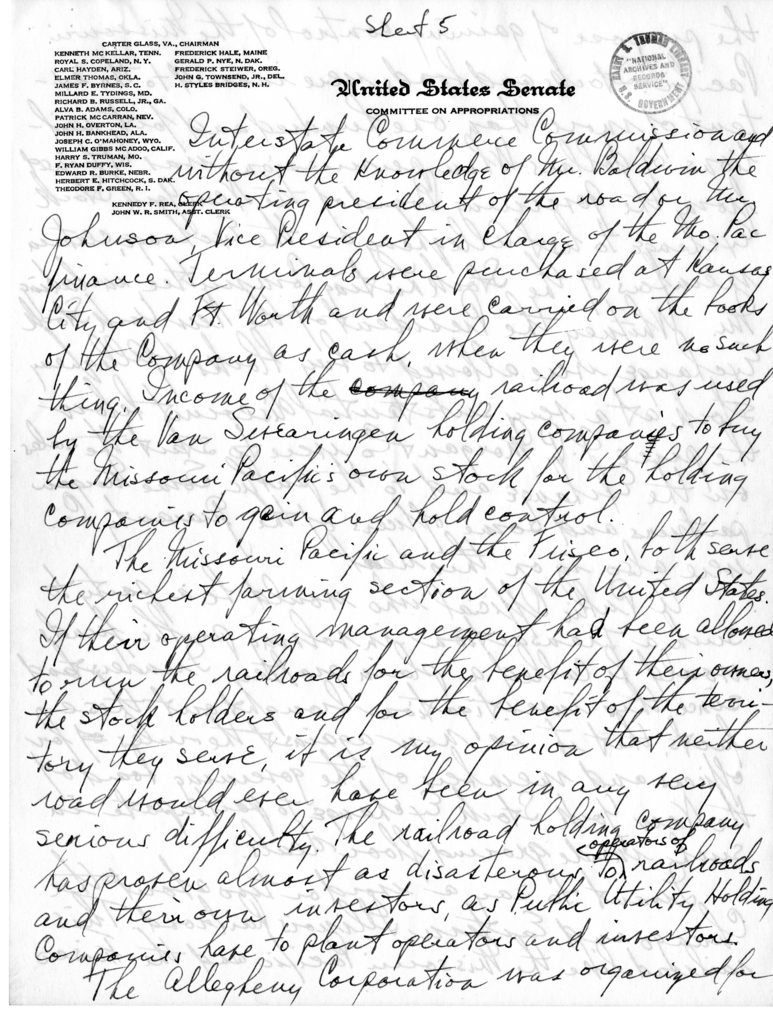 Sheet 5
CARTER GLASS, VA., CHAIRMAN
KENNETH MC KELLAR, TENN. FREDERICK HALE, MAINE
ROYAL S. COPELAND, N. Y. GERALD P. NYE, N. DAK.
CARL HAYDEN, ARIZ. FREDERICK STEIWER, OREG.
ELMER THOMAS, OKLA. JOHN G. TOWNSEND, JR., DEL.
JAMES F. BYRNES, S. C. H. STYLES BRIDGES, N. H.
MILLARD E. TYDINGS, MD.
RICHARD B. RUSSELL, JR., GA.
ALVA B. ADAMS, COLO.
PATRICK MCCARRAN, NEV.
JOHN H. OVERTON, LA.
JOHN H. BANKHEAD, ALA.
JOSEPH C. O'MAHONEY, WYO.
WILLIAM GIBBS MC ADOO, CALIF.
HARRY S. TRUMAN, MO.
F. RYAN DUFFY, WIS.
EDWARD R. BURKE, NEBR.
HERBERT E. HITCHCOCK, S. DAK.
THEODORE F. GREEN, R. I.
KENNEDY F. REA, CLERK
JOHN W. R. SMITH, ASST. CLERK
United States Senate
COMMITTEE ON APPROPRIATIONS
HARRY S. TRUMAN LIBRARY
"NATIONAL
ARCHIVES AND
RECORDS
SERVICE"
U.S. GOVERNMENT
Interstate Commerce Commission and
without the knowledge of Mr. Baldwin the
operating president of the road or Mr
Johnson, Vice President in charge of the Mo. Pac
finance. Terminals were purchased at Kansas
City and Ft. Worth and were carried on the books
of the Company as cash, when they were no such
thing. Income of the company railroad was used
by the Van Swearingen holding companies to buy
the Missouri Pacific's own stock for the holding
companies to gain and hold control.
The Missouri Pacific and the Frisco, both serve
the richest farming section of the United States.
If their operating management had been allowed
to run the railroads for the benefit of their owners,
the stock holders and for the benefit of the terri-
tory they serve, it is my opinion that neither
road would ever have been in any very
serious difficulty. The railroad holding company
has proven almost as disasterous, to operators of railroads
and their own investors, as Public Utility Holding
Companies have to plant operators and investors.
The Allegheny Corporation was organized for